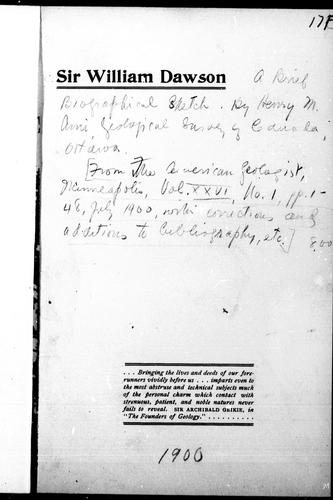 17F
Sir William Dawson A Brief
Biographical Sketch. By Henry M.
Ami Geological Survey of Canada,
Ottawa.
[From the American Geologist,
Minneapolis, Vol. XXVI, No. 1, pp. 1-
48, July 1900, with corrections and
additions to bibliography, etc.]
800
. . . Bringing the lives and deeds of our fore-
runners vividly before us . . . imparts even to
the most abstruse and technical subjects much
of the personal charm which contact with
strenuous, patient, and noble natures never
fails to reveal. SIR ARCHIBALD GEIKIE, in
"The Founders of Geology." . . . . . . . . . .
1900